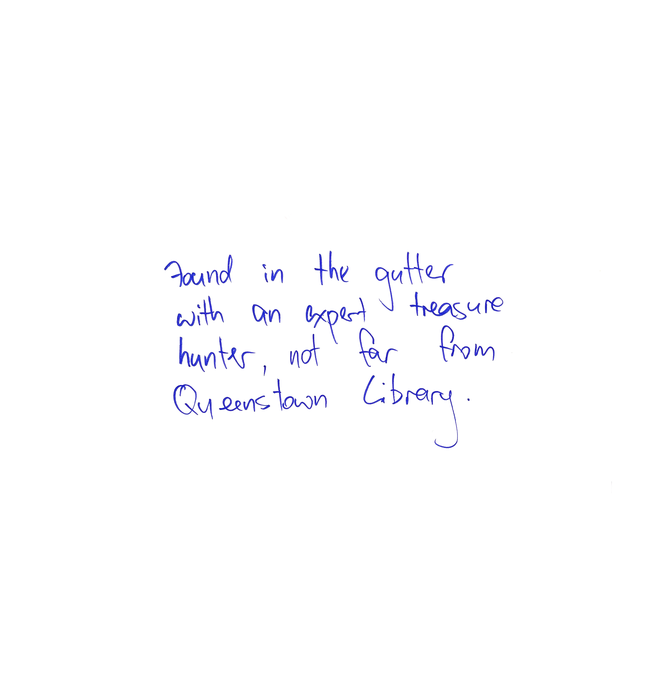 Found in the gutter
with an expert treasure
hunter, not far from
Queenstown Library.